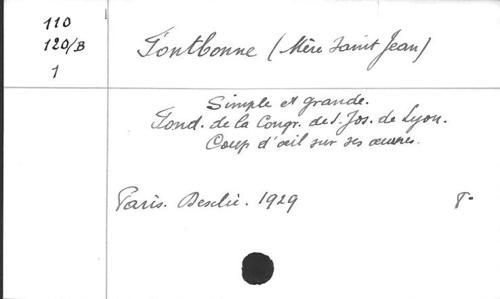 110
120/B
1
Fontbonne (Mère Saint Jean)
Simple et grande.
Fond. de la Congr. de S. Jos. de Lyon.
Coup d'œil sur ses œuvres.
Paris. Desclée. 1929